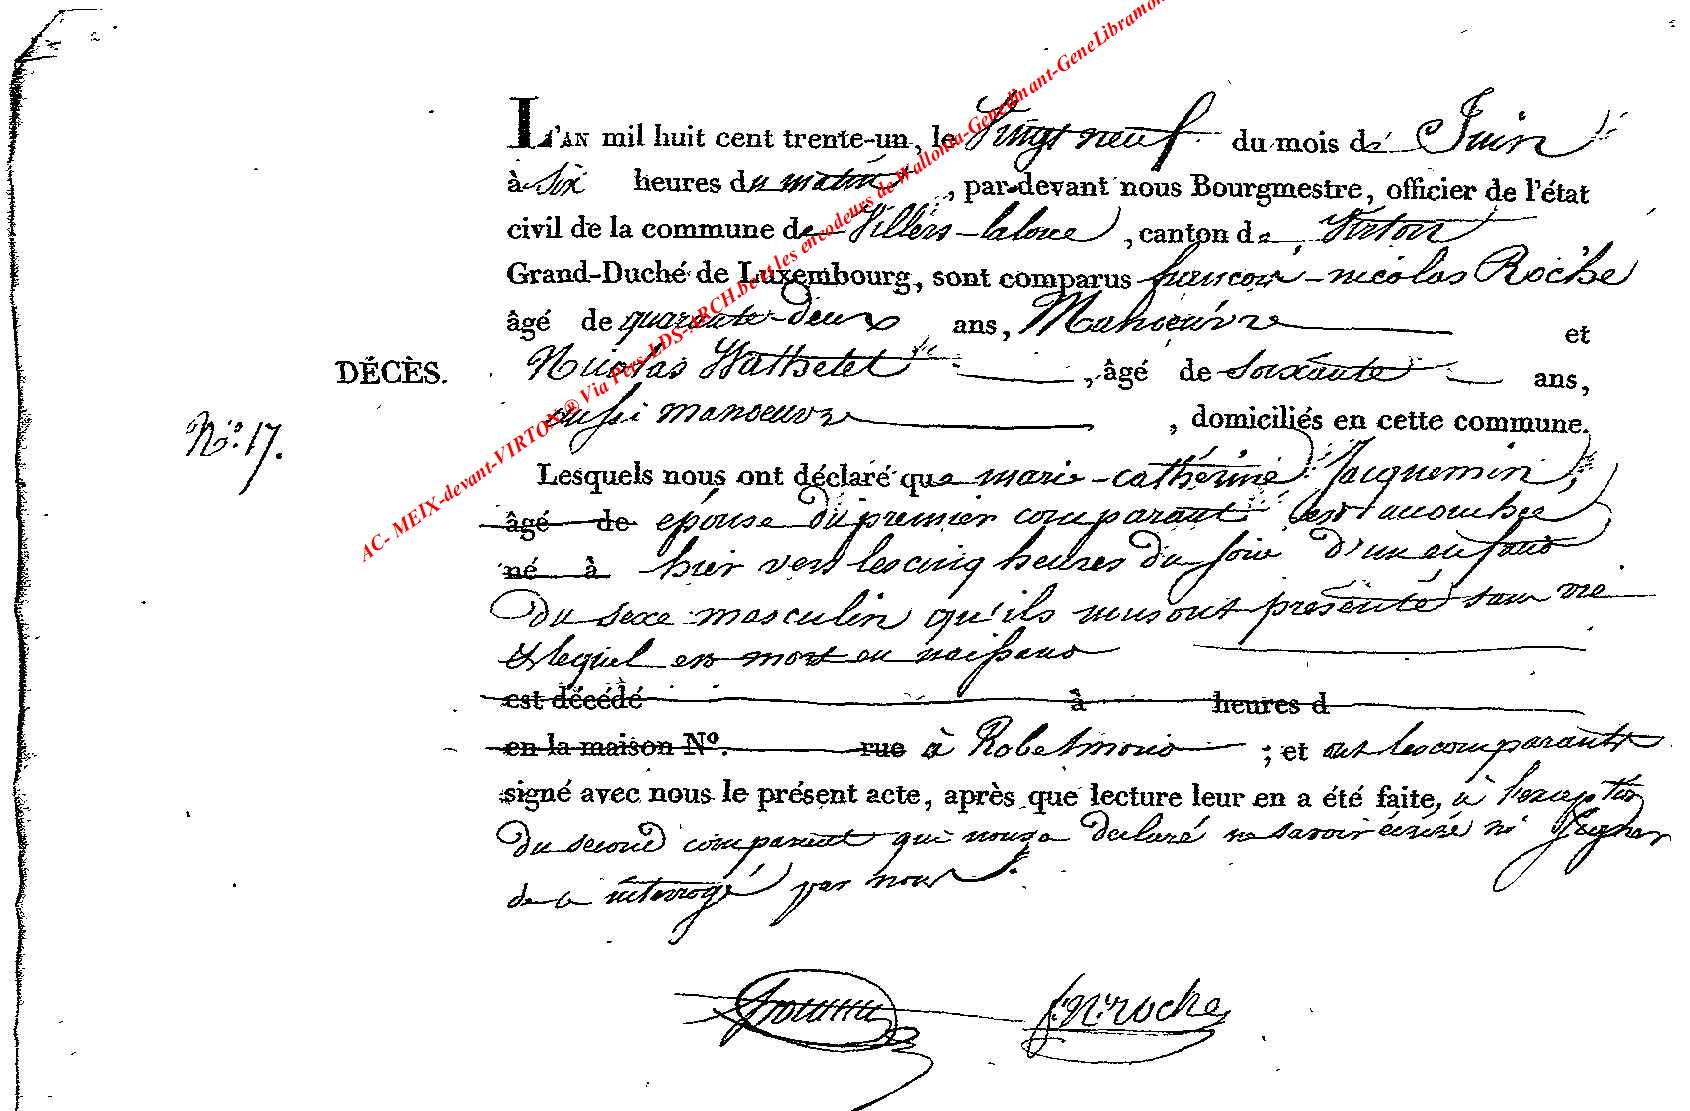 L'AN mil huit cent trente-un, le Vingt neuf du mois de Juin
à Six heures du matin, par-devant nous Bourgmestre, officier de l'état
civil de la commune de Villers-laloue, canton de Virton
Grand-Duché de Luxembourg, sont comparus françois-nicolas Roche
âgé de quarante-deux ans, Manoeuvre et
DÉCÈS.
Nicolas Wathelet, âgé de soixante ans,
aussi manoeuvre, domiciliés en cette commune.
N.º 17.
Lesquels nous ont déclaré que marie-cathérine Jacquemin,
âgé de épouse du premier comparant est accouchée
né à hier vers les cinq heures du soir d'un enfant
du sexe masculin qu'ils nous ont présenté sans vie
et lequel est mort en naissant
est décédé à heures d
en la maison Nº. rue à Robelmont; et ont les comparants
signé avec nous le présent acte, après que lecture leur en a été faite, à l'exception
du second comparant qui nous a déclaré ne savoir écrire ni signer
de ce interrogé par nous.
f. N. roche
AC- MEIX-devant-VIRTON® Via Pers-LDS-ARCH.be et les encodeurs de Wallonia-Genedinant-GeneLibramon